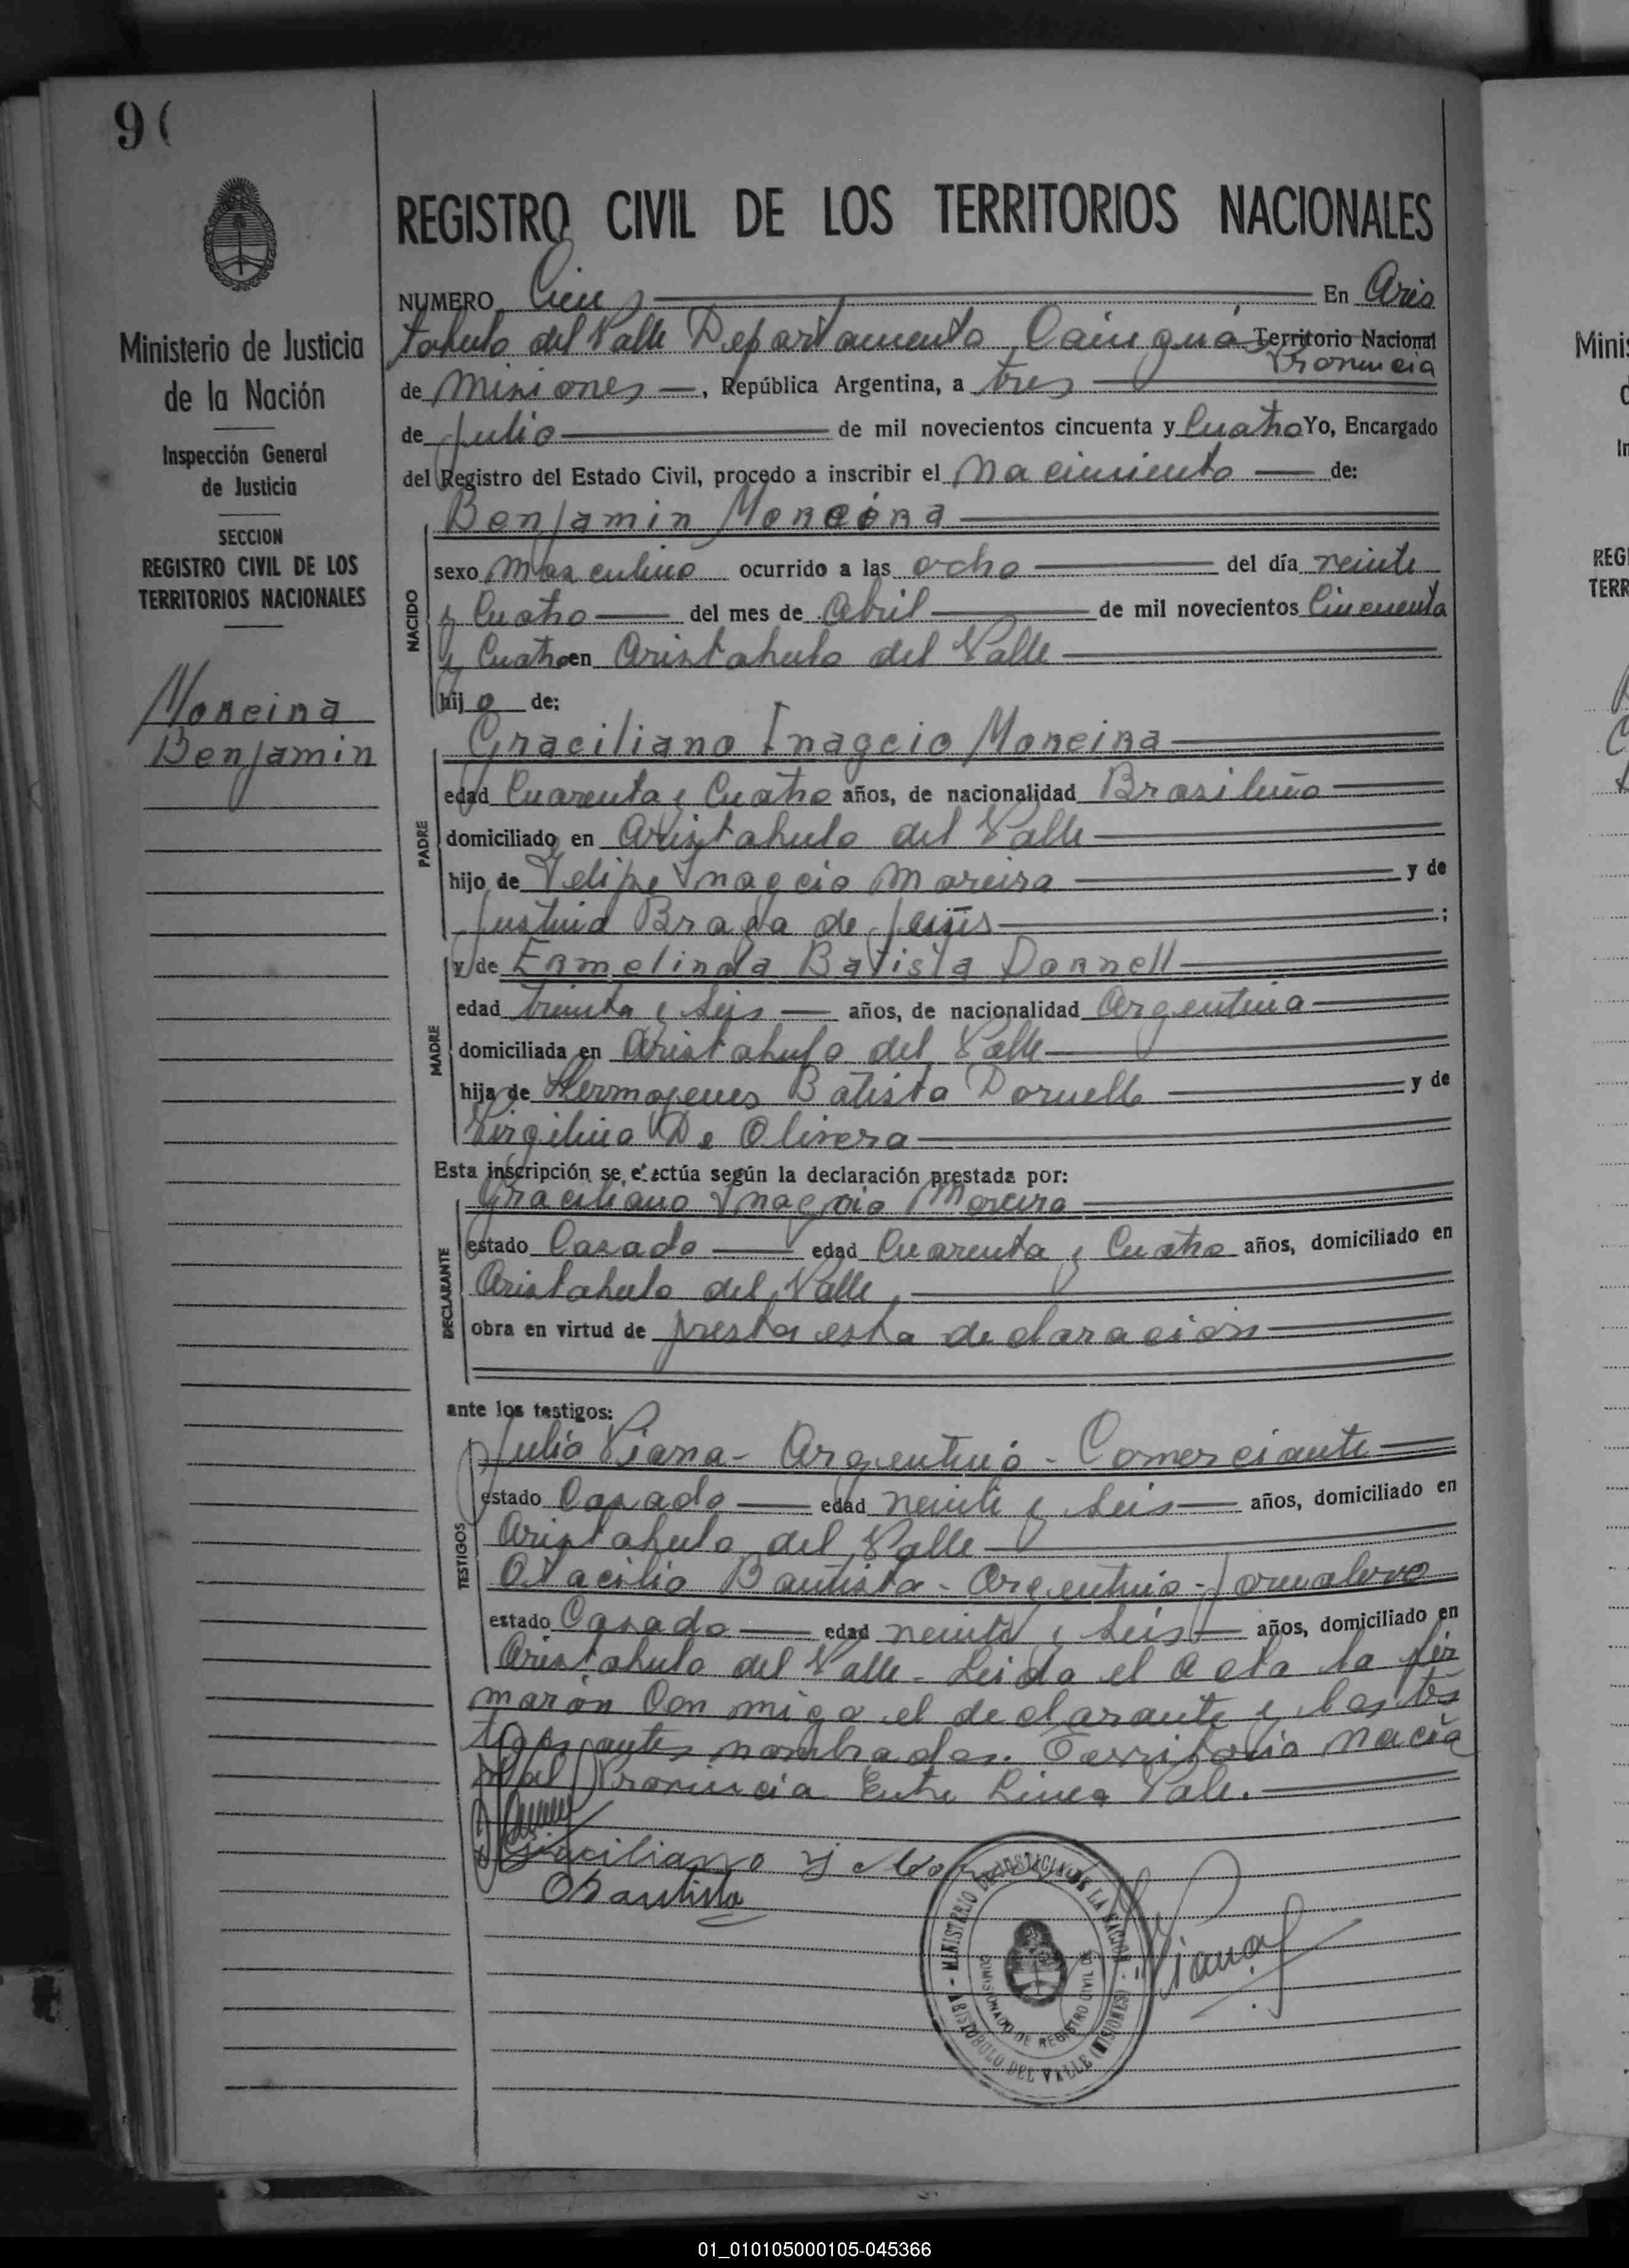 9
REGISTRO CIVIL DE LOS TERRITORIOS NACIONALES
NUMERO Cien En Aris
tobulo del Valle Departamento Cainguás Territorio Nacional
Provincia
de Misiones, República Argentina, a tres
de Julio de mil novecientos cincuenta y Cuatro Yo, Encargado
del Registro del Estado Civil, procedo a inscribir el Nacimiento de:
Ministerio de Justicia
de la Nación
Inspección General
de Justicia
SECCION
REGISTRO CIVIL DE LOS
TERRITORIOS NACIONALES
Moreira
Benjamin
NACIDO
Benjamin Moreira
sexo Masculino ocurrido a las ocho del día veinte
y Cuatro del mes de Abril de mil novecientos Cincuenta
y Cuatro en Aristobulo del Valle
hijo de:
PADRE
Graciliano Inageio Moreira
edad Cuarenta y Cuatro años, de nacionalidad Brasileño
domiciliado en Aristobulo del Valle
hijo de Felipe Inageio Moreira y de
Justina Braga de Jesús;
MADRE
y de Ermelinda Batista Dornell
edad treinta y Seis años, de nacionalidad Argentina
domiciliada en Aristobulo del Valle
hija de Hermogenes Batista Dornell y de
Virgilina De Olivera
Esta inscripción se efectúa según la declaración prestada por:
DECLARANTE
Graciliano Inageio Moreira
estado Casado edad Cuarenta y Cuatro años, domiciliado en
Aristobulo del Valle
obra en virtud de prestar esta declaración
ante los testigos:
TESTIGOS
Julio Viana - Argentino - Comerciante
estado Casado edad veinte y Seis años, domiciliado en
Aristobulo del Valle
Otacilio Bautista - Argentino - Jornalero
estado Casado edad veinte y Seis años, domiciliado en
Aristobulo del Valle - Leida el Acta la fir
marón Con migo el declarante y los tes
tigos antes nombrados. Territorio Nacio
nal Provincia Entre Linea Vale.
Graciliano y
OBautista
Viana
MINISTERIO DE JUSTICIA DE LA NACION
COMISIONADO DE REGISTRO CIVIL DE
ARISTOBULO DEL VALLE (MISIONES)
Minis
REGI
TERR
01_010105000105-045366